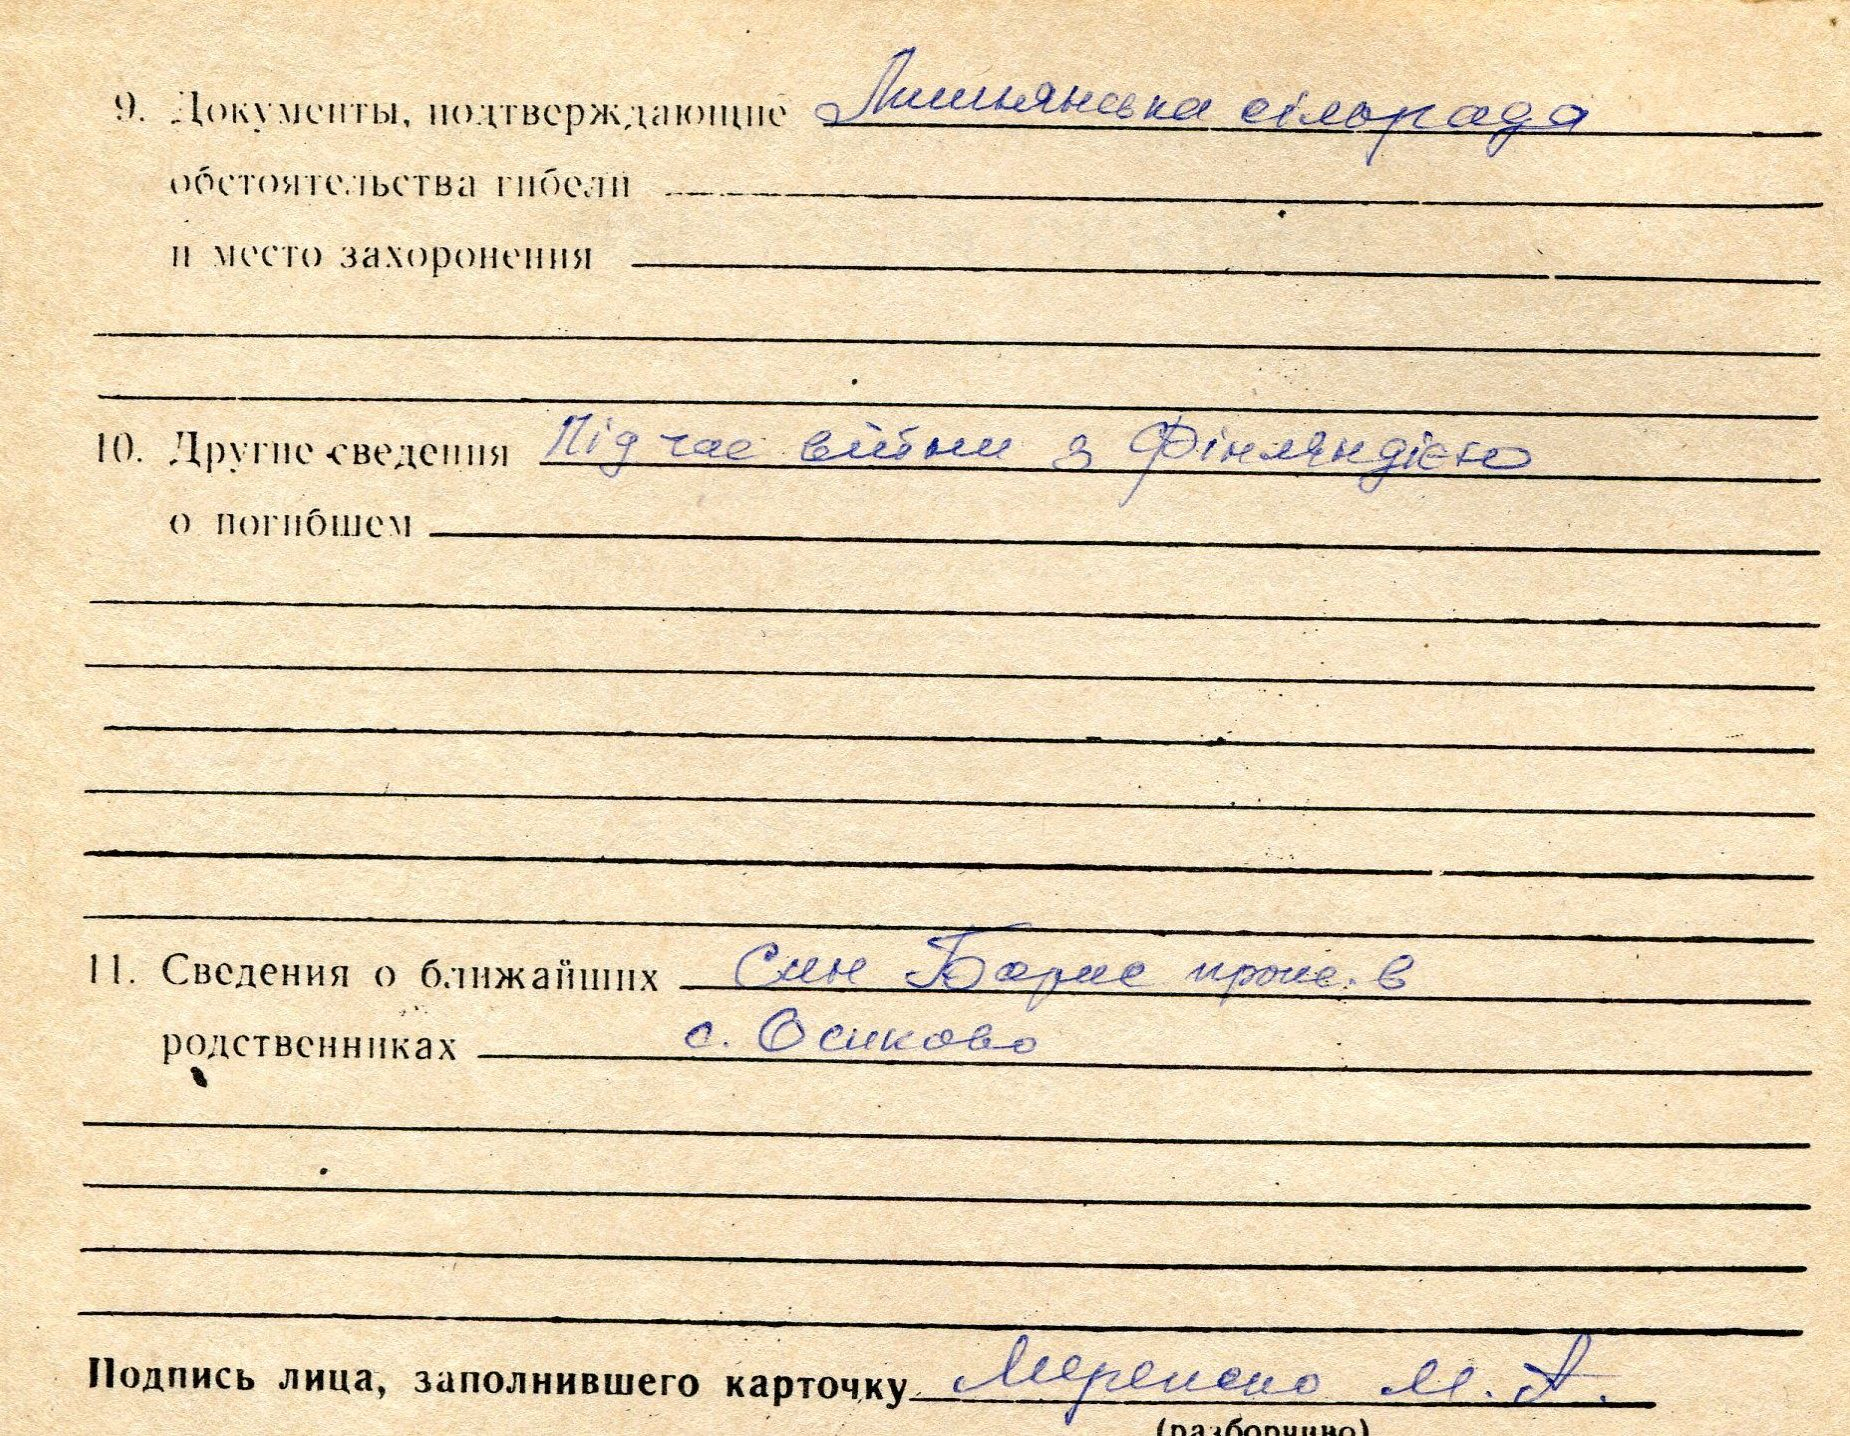 9. Документы, подтверждающие сільрада
обстоятельства гибели
и место захоронения
10. Другие сведения Під час війни з Фінляндією
о погибшем
11. Сведения о ближайших Син Борис прож. в
родственниках с. Осиково
Подпись лица, заполнившего карточку М. А.
(разборчиво)